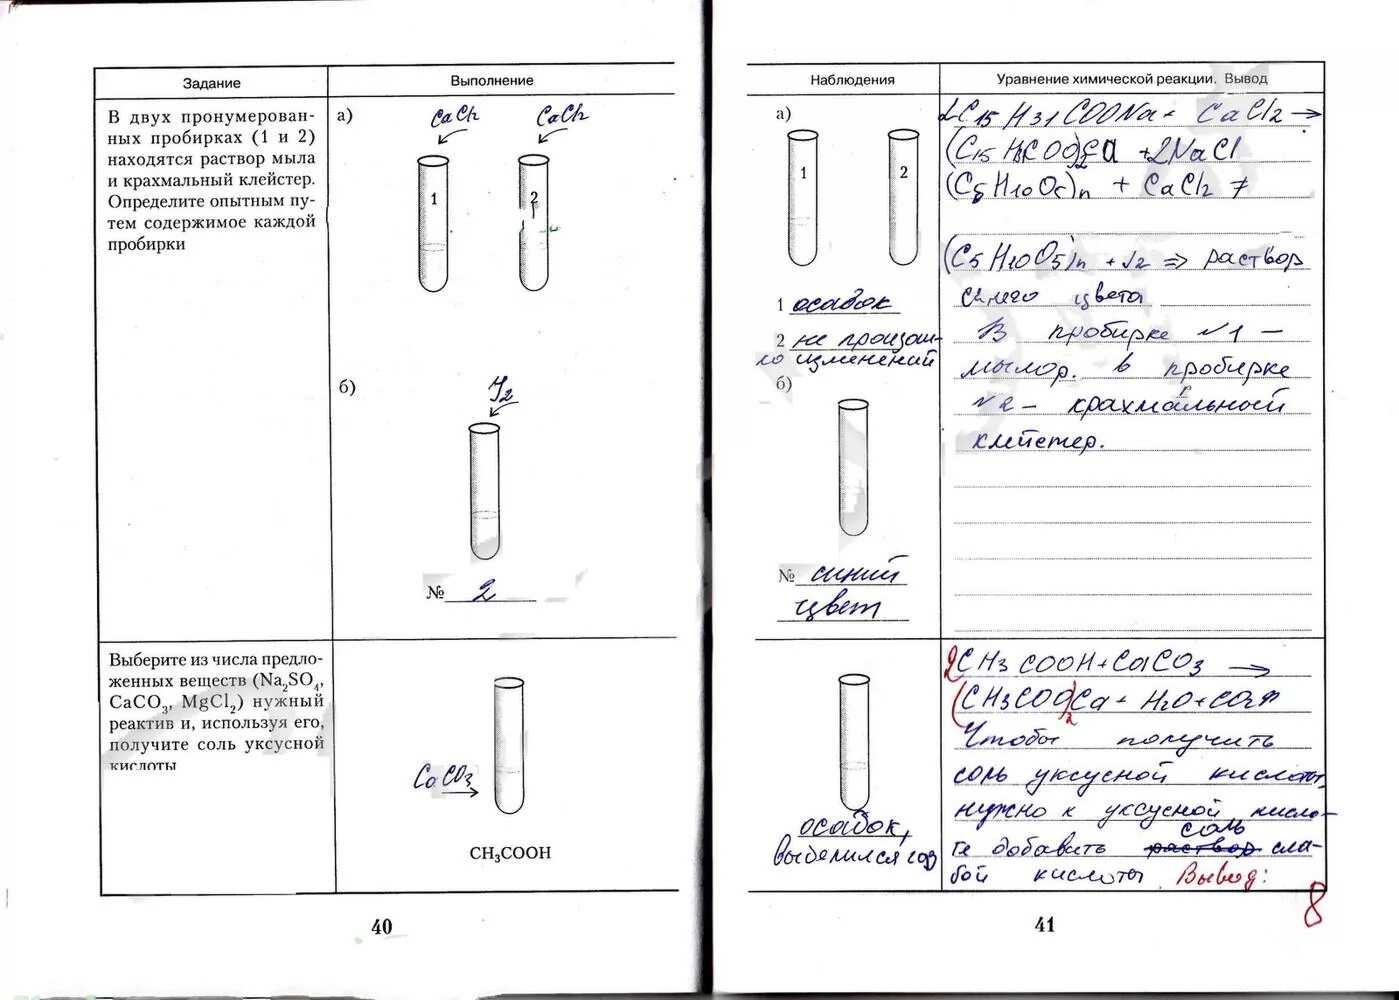 Задание
Выполнение
В двух пронумерован-
ных пробирках (1 и 2)
находятся раствор мыла
и крахмальный клейстер.
Определите опытным пу-
тем содержимое каждой
пробирки
а)
CaCl2
CaCl2
1
2
б)
J2
№ 2
Выберите из числа предло-
женных веществ (Na2SO4,
CaCO3, MgCl2) нужный
реактив и, используя его,
получите соль уксусной
кислоты
CaCO3
CH3COOH
40
Наблюдения
Уравнение химической реакции. Вывод
а)
1
2
1 осадок
2 не произош-
ло изменений
б)
№ синий
цвет
2C15H31COONa + CaCl2 →
(C15H31COO)2Ca + 2NaCl
+ CaCl2 ≠
(C5H10O5)n + J2 => раствор
синего цвета
В пробирке №1 –
мылор. в пробирке
№2 – крахмальный
клейстер.
осадок,
выделился газ
2CH3COOH + CaCO3 →
(CH3COO)2Ca + H2O + CO2↑
Чтобы получить
соль уксусной кислоты,
нужно к уксусной кисло-
соль
те добавить раствор сла-
бой кислоты. Вывод:
8
41